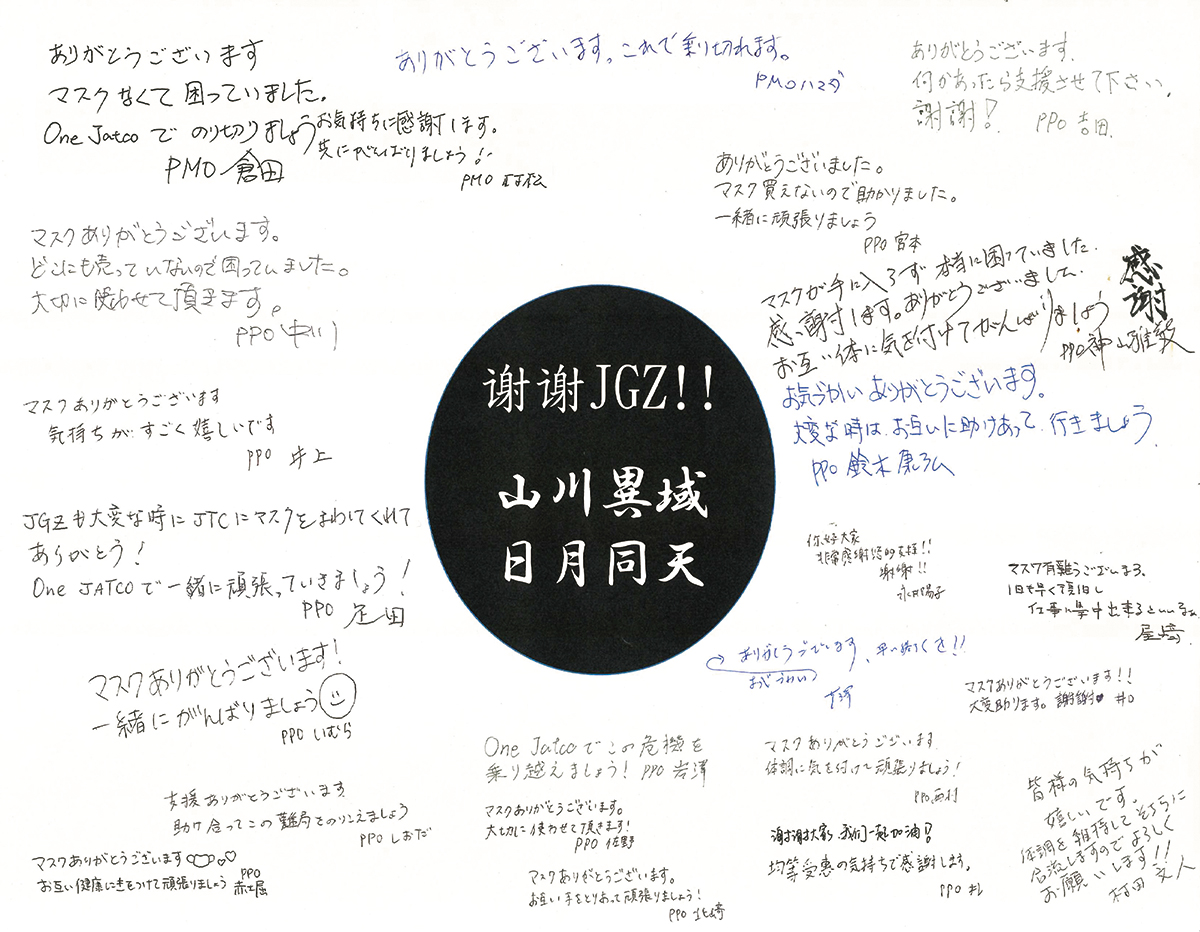 ありがとうございます
マスクなくて困っていました。
One Jatcoで のり切りましょう
PMO 倉田
お気持ちに感謝します。
共にがんばりましょう!
PMO
ありがとうございます。これで乗り切れます。
PMO ハマダ
ありがとうございます.
何かあったら支援させて下さい.
謝謝!
PPO 吉田.
ありがとうございました。
マスク買えないので助かりました。
一緒に頑張りましょう
PPO 宮本
マスクありがとうございます。
どこにも売っていないので困っていました。
大切に使わせて頂きます。
PPO 中川
マスクが手に入らず 本当に困っていました.
感謝します。ありがとうございました.
お互い体に気を付けてがんばりましょう
感謝
PPO 神山雅毅
マスクありがとうございます
気持ちが すごく嬉しいです
PPO 井上
お気づかい ありがとうございます。
大変な時は、お互いに助けあって、行きましょう
PPO 鈴木
谢谢JGZ!!
山川異域
日月同天
JGZも大変な時にJTCにマスクをまわしてくれて
ありがとう!
One JATCOで一緒に頑張っていきましょう!
PPO 疋田
你好大家
非常感謝您的支援!!
謝謝!!
陽子
マスク有難うございます、
1日も早く復旧し
仕事に集中出来るといいな
尾崎
マスクありがとうございます!
一緒にがんばりましょう
PPO いむら
ありがとうございます、早い
おきづかい
マスクありがとうございます!!
大変助ります。謝謝♥ 井口
One Jatcoでこの危機を
乗り越えましょう! PPO 岩澤
マスクありがとうございます
体調に気を付けて頑張りましょう!
PPO 西村
支援ありがとうございます
助け合ってこの難局をのりこえましょう
PPO しおだ
マスクありがとうございます。
大切に使わせて頂きます!
PPO 佐野
謝謝大家,我们一起加油!
均等受患の気持ちで感謝します。
PPO
皆様の気持ちが
嬉しいです。
体調を維持してそちらに
合流しますのでよろしく
お願いします!!
村田 文人
マスクありがとうございます
お互い健康に気をつけて頑張りましょう
PPO
赤土屋
マスクありがとうございます。
お互い手をとりあって頑張りましょう!
PPO 北崎